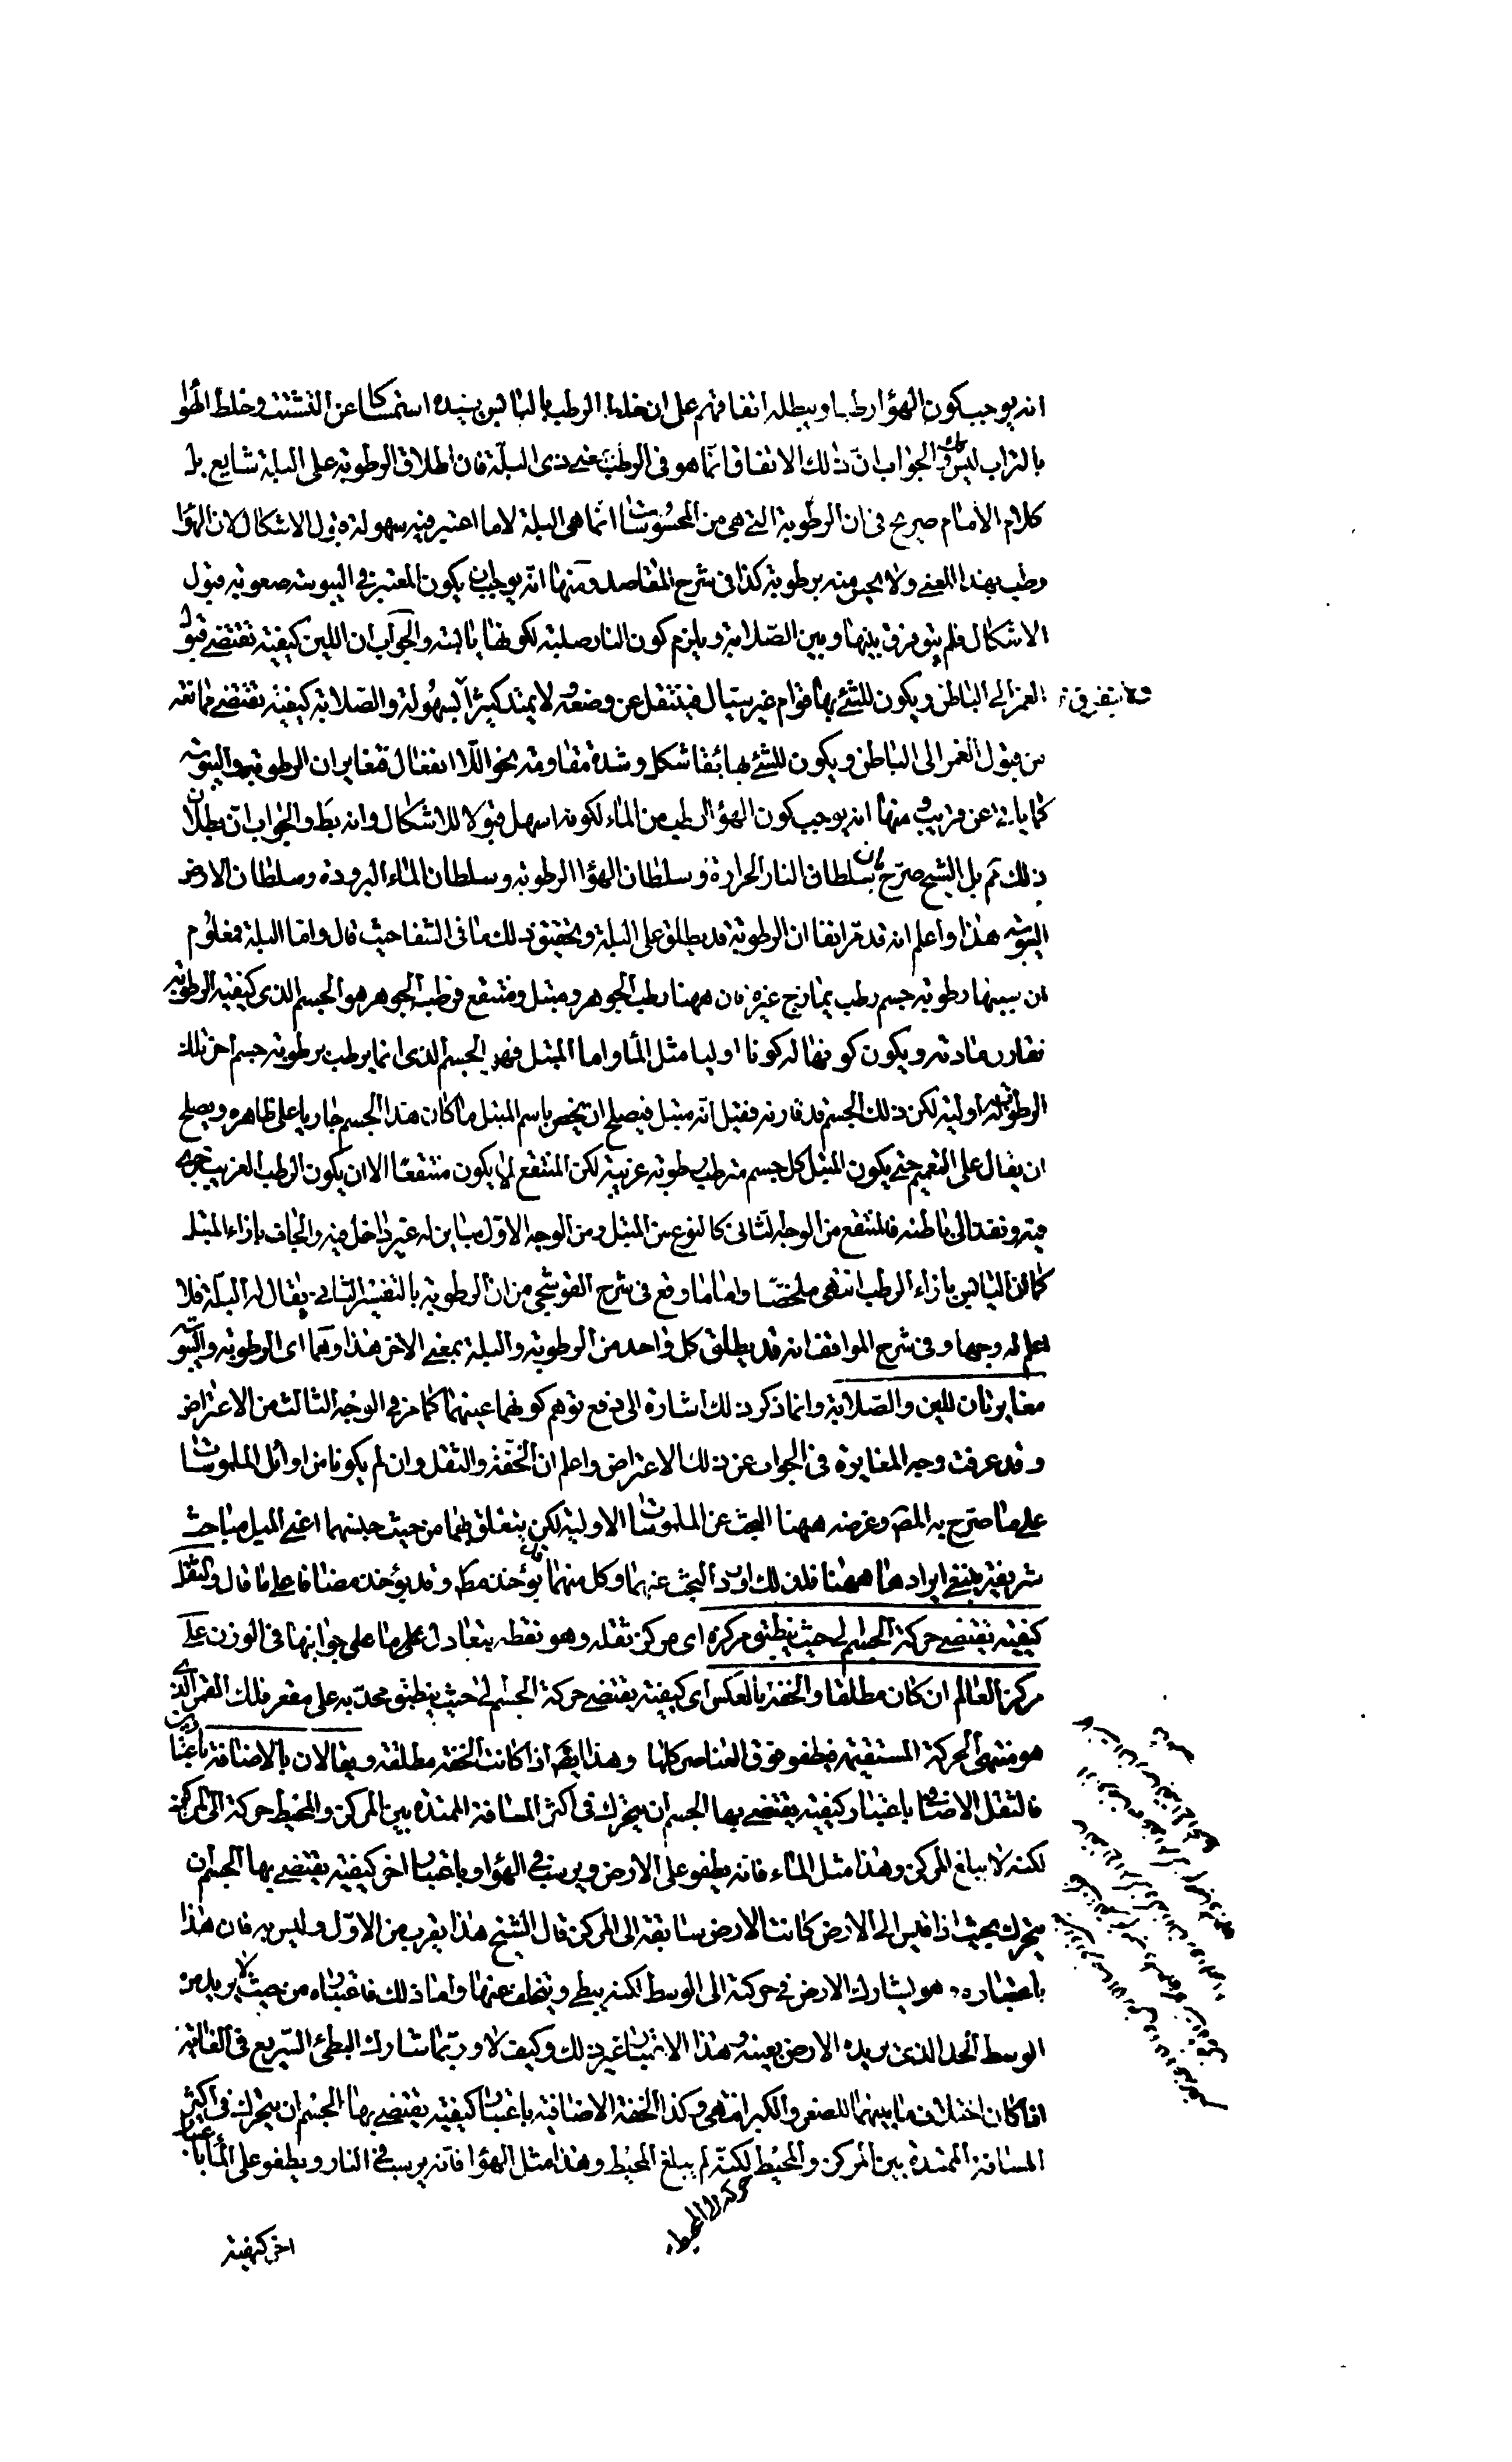 انه يوجب كون الهواء رطبا ويبطله اتفاقهم على ان خلط الرطب باليابس يفيده استمساكا عن التشتت وخلط الهواء
بالتراب ليس كك والجواب ان ذلك الاتفاق انما هو فى الرطب بمعنى ذى البلة فان اطلاق الرطوبة على البلة شايع بل
كلام الامام صريح فى ان الرطوبة التى هى من المحسوسات انما هى البلة لا ما اعتبر فيه سهولة قبول الاشكال لان الهواء
رطب بهذا المعنى ولا يحس منه برطوبة كذا فى شرح المقاصد ومنها انه يوجب ان يكون المعتبر فى اليبوسة صعوبة قبول
الاشكال فلم يبق فرق بينها وبين الصلابة ويلزم كون النار صلبة لكونها يابسة والجواب ان اللين كيفية تقتضى قبول
الغمز الى الباطن ويكون للشئ بها قوام غير سيال فينتقل عن وضعه ولا يمتد كثيرا بسهولة والصلابة كيفية تقتضى ممانعة
من قبول الغمز الى الباطن ويكون للشئ بها بقاء شكل وشدة مقاومة نحو اللا انفعال فتغايران الرطوبة واليبوسة
كما ياتى عن قريب ومنها انه يوجب كون الهواء ارطب من الماء لكونه اسهل قبولا للاشكال وانه بط والجواب ان بطلان
ذلك مم بل الشيخ صرح بان سلطان النار الحرارة وسلطان الهواء الرطوبة وسلطان الماء البرودة وسلطان الارض
اليبوسة هذا واعلم انه قد مر انفا ان الرطوبة قد يطلق على البلة وتحقيق ذلك ما فى الشفا حيث قال واما البلة فمعلوم
ان سببها رطوبة جسم رطب يمازج غيره فان ههنا رطب الجوهر ومبتل ومنتقع فرطب الجوهر هو الجسم الذى كيفية الرطوبة
تقارن مادته ويكون كونها له كونا اوليا مثل الماء واما المبتل فهو الجسم الذى انما يرطب برطوبة جسم اخر تلك
الرطوبة له اولية لكن ذلك الجسم قد قارنه فقيل انه مبتل فيصلح ان يخص باسم المبتل ما كان هذا الجسم جاريا على ظاهره ويصلح
ان يقال على التعميم حتى يكون المبتل كل جسم مترطب برطوبة غريبة لكن المنتقع لا يكون منتقعا الا ان يكون الرطب الغريب جرى
فيه ونفذ الى باطنه فالمنتقع من الوجه الثانى كالنوع من المبتل ومن الوجه الاول مباين له غير داخل فيه والجاف بازاء المبتل
كما ان اليابس بازاء الرطب انتهى ملخصا واما ما وقع فى شرح القوشجى من ان الرطوبة بالتفسير الثانى يقال له البلة فلا
اعلم له وجها وفى شرح المواقف انه قد يطلق كل واحد من الرطوبة والبلة بمعنى الاخر هذا وهما اى الرطوبة واليبوسة
مغايرتان للين والصلابة وانما ذكر ذلك اشارة الى دفع توهم كونهما عينهما كما مر فى الوجه الثالث من الاعتراض
وقد عرفت وجه المغايرة فى الجواب عن ذلك الاعتراض واعلم ان الخفة والثقل وان لم يكونا من اوائل الملموسات
على ما صرح به المص وغرضه ههنا البحث عن الملموسات الاولية لكن يتعلق بهما من حيث جنسهما اعنى الميل مباحث
شريفة ينبغى ايرادها ههنا فلذلك اورد البحث عنهما وكل منهما قد يؤخذ مط وقد يؤخذ مضافا على ما قال والثقل
كيفية تقتضى حركة الجسم الى حيث ينطبق مركزه اى مركز ثقله وهو نقطة يتعادل على ما على جوانبها فى الوزن على
مركز العالم ان كان مطلقا والخفة بالعكس اى كيفية يقتضى حركة الجسم الى حيث ينطبق محدبه على مقعر فلك القمر الذى
هو منتهى الحركة المستقيمة فيطفو فوق العناصر كلها وهذا ايض اذا كانت الخفة مطلقة ويقالان بالاضافة باعتبارين
فالثقل الاضافى باعتبار كيفية يقتضى بها الجسم ان يتحرك فى اكثر المسافة الممتدة بين المركز والمحيط حركة الى المركز
لكنه لا يبلغ المركز وهذا مثل الماء فانه يطفو على الارض ويرسب فى الهواء وباعتبار اخر كيفية يقتضى بها الجسم ان
يتحرك بحيث اذا قيس الى الارض كانت الارض سابقة الى المركز قال الشيخ هذا يقرب من الاول وليس به فان هذا
باعتباره وهو يشارك الارض فى حركة الى الوسط لكنه يبطئ ويتخلف عنها واما ذلك فاعتباره من حيث لا يريد من
الوسط الحد الذى يريده الارض بعينه وهذا الاعتبار غير ذلك وكيف لا وربما شارك البطئ السريع فى الغاية
اذا كان اختلاف ما بينهما للصغر والكبر انتهى وكذا الخفة الاضافية باعتبار كيفية يقتضى بها الجسم ان يتحرك فى اكثر
المسافة الممتدة بين المركز والمحيط لكنه لم يبلغ المحيط وهذا مثل الهواء فانه يرسب فى النار ويطفو على الماء باعتبار
حركة الى المحيط
اخر كيفية